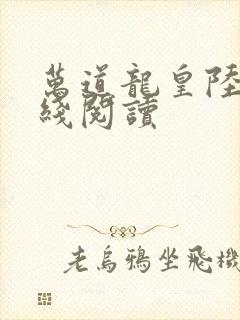 萬道龍皇陸
綫閱讀
老烏鴉坐飛機